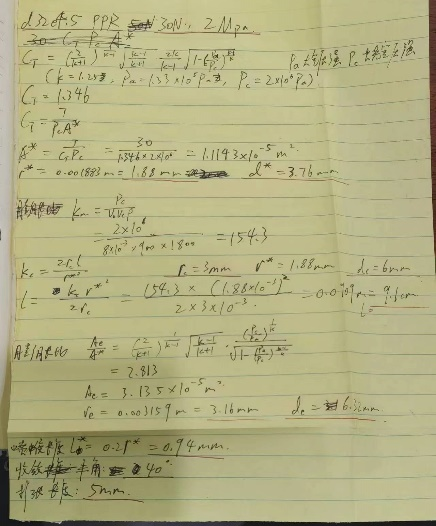 d32×4.5 PPR 30N, 2Mpa
30 = C_T P_c A*
C_T = (2/(k+1))^(1/(k-1)) √((k-1)/(k+1)) · 2k/(k-1) √(1-(Pa/Pc)^((k-1)/k)) Pa 大气压强 Pc
(k=1.25, Pa=1.33×10⁵Pa, Pc=2×10⁶Pa)
C_T = 1.346
C_T = T/(PcA*)
A* = T/(C_T Pc) = 30/(1.346×2×10⁶) = 1.1143×10⁻⁵m²
r* = 0.001883m = 1.88mm d* = 3.76mm
km =
2×10⁶/(8×10⁻³×900×1800) = 154.3
r_c = 3mm r* = 1.88mm d_c = 6mm
l = k r*²/2r_c = 154.3×(1.88×10⁻³)²/(2×3×10⁻³) = 9.1cm
Ae/A* = (2/(k+1))^(1/(k-1)) √((k-1)/(k+1)) · (Pc/Pa)^(1/k)/√(1-(Pa/Pc)^((k-1)/k))
= 2.813
Ae = 3.135×10⁻⁵m²
re = 0.003159m = 3.16mm de = 6.32mm
长度 l* = 0.2r* = 0.94mm
收敛半角: 40°
长度: 5mm